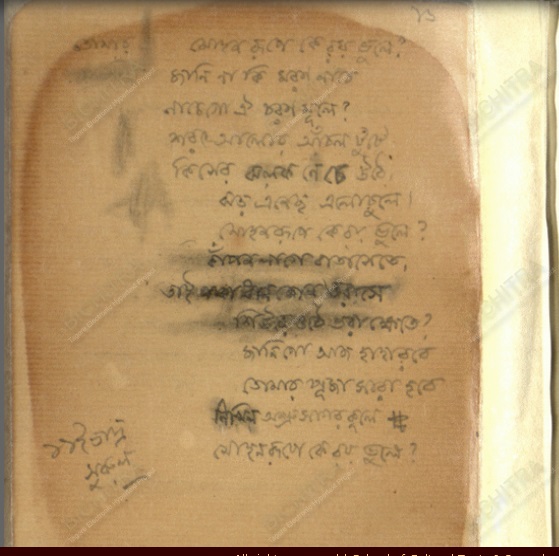 ১৬
তোমার মোহন রূপে কে রয় ভুলে?
জানি না কি মরণ নাচে
নাচে গো ঐ চরণ মূলে?
শরৎ আলোর আঁচল টুটে
কিসের ঝলক নেচে উঠে,
ঝড় এনেছ এলোচুলে।
মোহন রূপে কে রয় ভুলে?
কাঁপন লাগে বাতাসেতে,
পাকা ধানের তরাসে
শিউরে ওঠে ভরা ক্ষেতে?
জানি গো আজ হাহারবে
তোমার পূজা সারা হবে
নিখিল অশ্রুসাগর কূলে
মোহন রূপে কে রয় ভুলে?
সুরুল